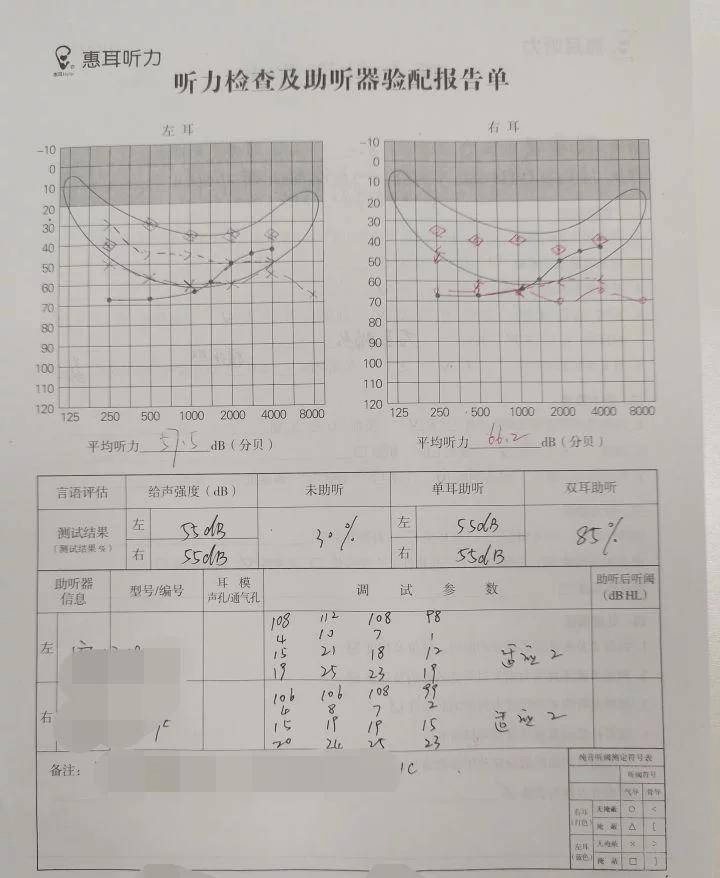 惠耳听力
听力检查及助听器验配报告单
左 耳
右 耳
-10
0
10
20
30
40
50
60
70
80
90
100
110
120
125 250 500 1000 2000 4000 8000
-10
0
10
20
30
40
50
60
70
80
90
100
110
120
125 250 500 1000 2000 4000 8000
平均听力 57.5 dB（分贝）
平均听力 66.2 dB（分贝）
言语评估 给声强度（dB） 未助听 单耳助听 双耳助听
测试结果
（测试结果%）
左 55dB 30% 左 55dB 85%
右 55dB 右 55dB
助听器
信息
型号/编号
耳 模
声孔/通气孔
调 试 参 数
助听后听阈
(dB HL)
左
108 112 108 98
4 10 7 1
15 21 18 12
19 25 23 19
适应 2
右
106 106 108 99
4 8 7 2
15 19 19 15
20 24 25 23
适应 2
备注：
1C
纯音听阈测定符号表
听阈符号
气导 骨导
右耳
(红色)
无掩蔽 ○ <
掩 蔽 △ [
左耳
(蓝色)
无掩蔽 × >
掩 蔽 □ ]